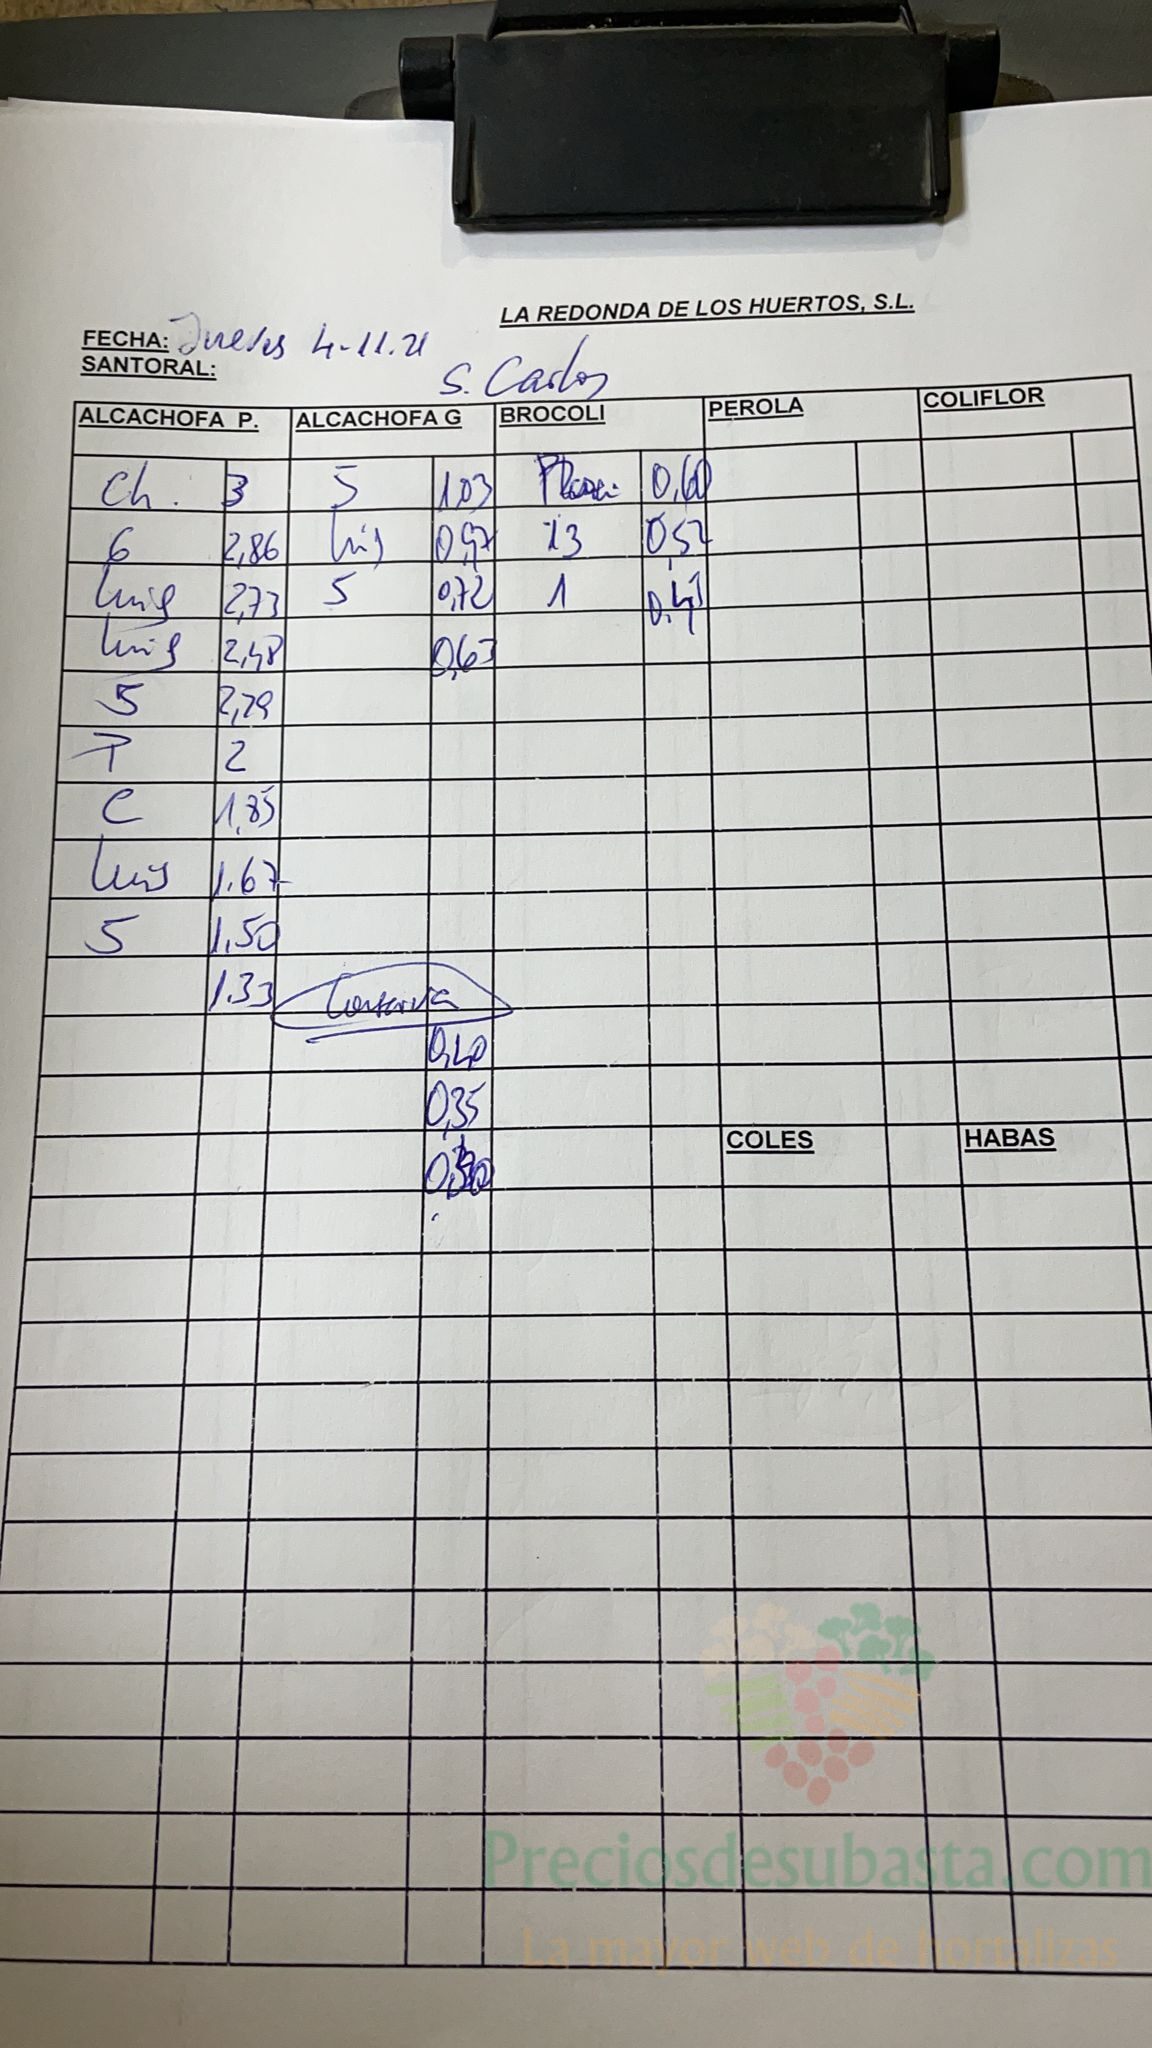 LA REDONDA DE LOS HUERTOS, S.L.
FECHA: Jueves 4-11.21
SANTORAL: S. Carlos
ALCACHOFA P. ALCACHOFA G BROCOLI PEROLA COLIFLOR
Ch. 3 5 1.03 0,60
6 2,86 luis 0,97 13 0,52
luis 2,73 5 0,72 1
luis 2,48 0,63
5 2,29
P 2
C 1,85
luis 1.67
5 1,50
1.33 Conserva
0,40
0,35
COLES HABAS
Preciosdesubasta.com
La mayor web de hortalizas